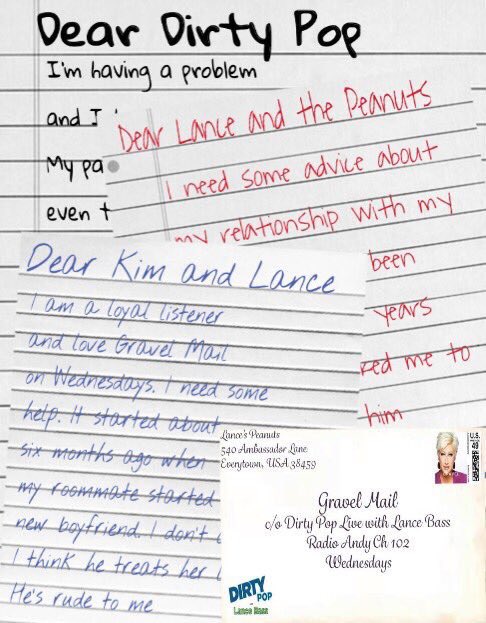 Dear Dirty Pop
I'm having a problem
and I
My pa
even t
Dear Lance and the Peanuts
I need some advice about
my relationship with my
been
years
ked me to
him
Dear Kim and Lance
I am a loyal listener
and love Gravel Mail
on Wednesdays. I need some
help. It started about
six months ago when
my roommate started
new boyfriend. I don't
I think he treats her
He's rude to me
Lance's Peanuts
540 Ambassador Lane
Everytown, USA 38459
U.S.
Gravel Mail
c/o Dirty Pop Live with Lance Bass
Radio Andy Ch 102
Wednesdays
DIRTY
POP
Lance Bass